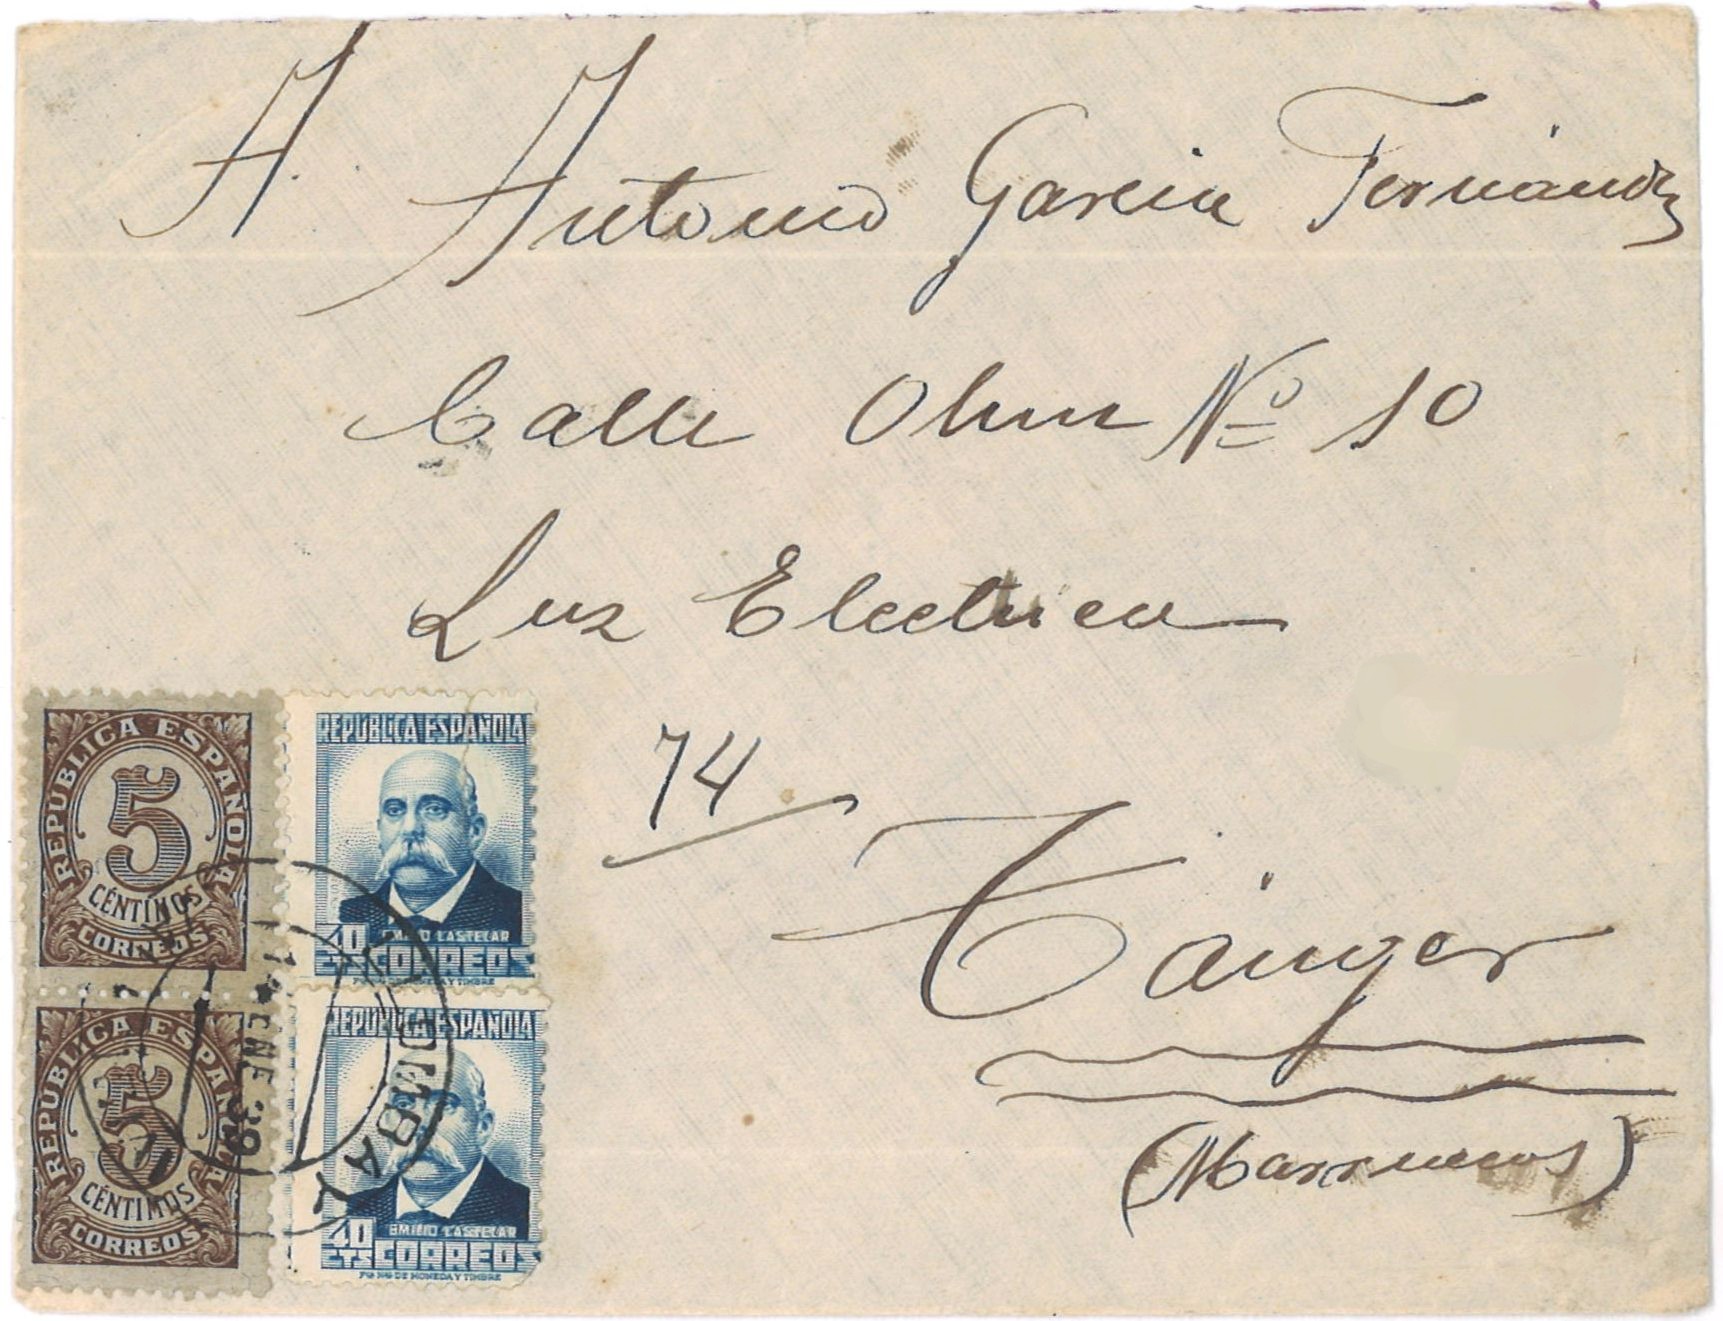 A. Antonio Garcia Fernández
Calle Ohm Nº 10
Luz Electrica
74
Tánger
(Marruecos)
REPUBLICA ESPAÑOLA
5
CÉNTIMOS
CORREOS
REPUBLICA ESPAÑOLA
5
CÉNTIMOS
CORREOS
REPÚBLICA ESPAÑOLA
EMILIO CASTELAR
40 CTS CORREOS
FCA NAL DE MONEDA Y TIMBRE
REPÚBLICA ESPAÑOLA
EMILIO CASTELAR
40 CTS CORREOS
FCA NAL DE MONEDA Y TIMBRE
ENE 39